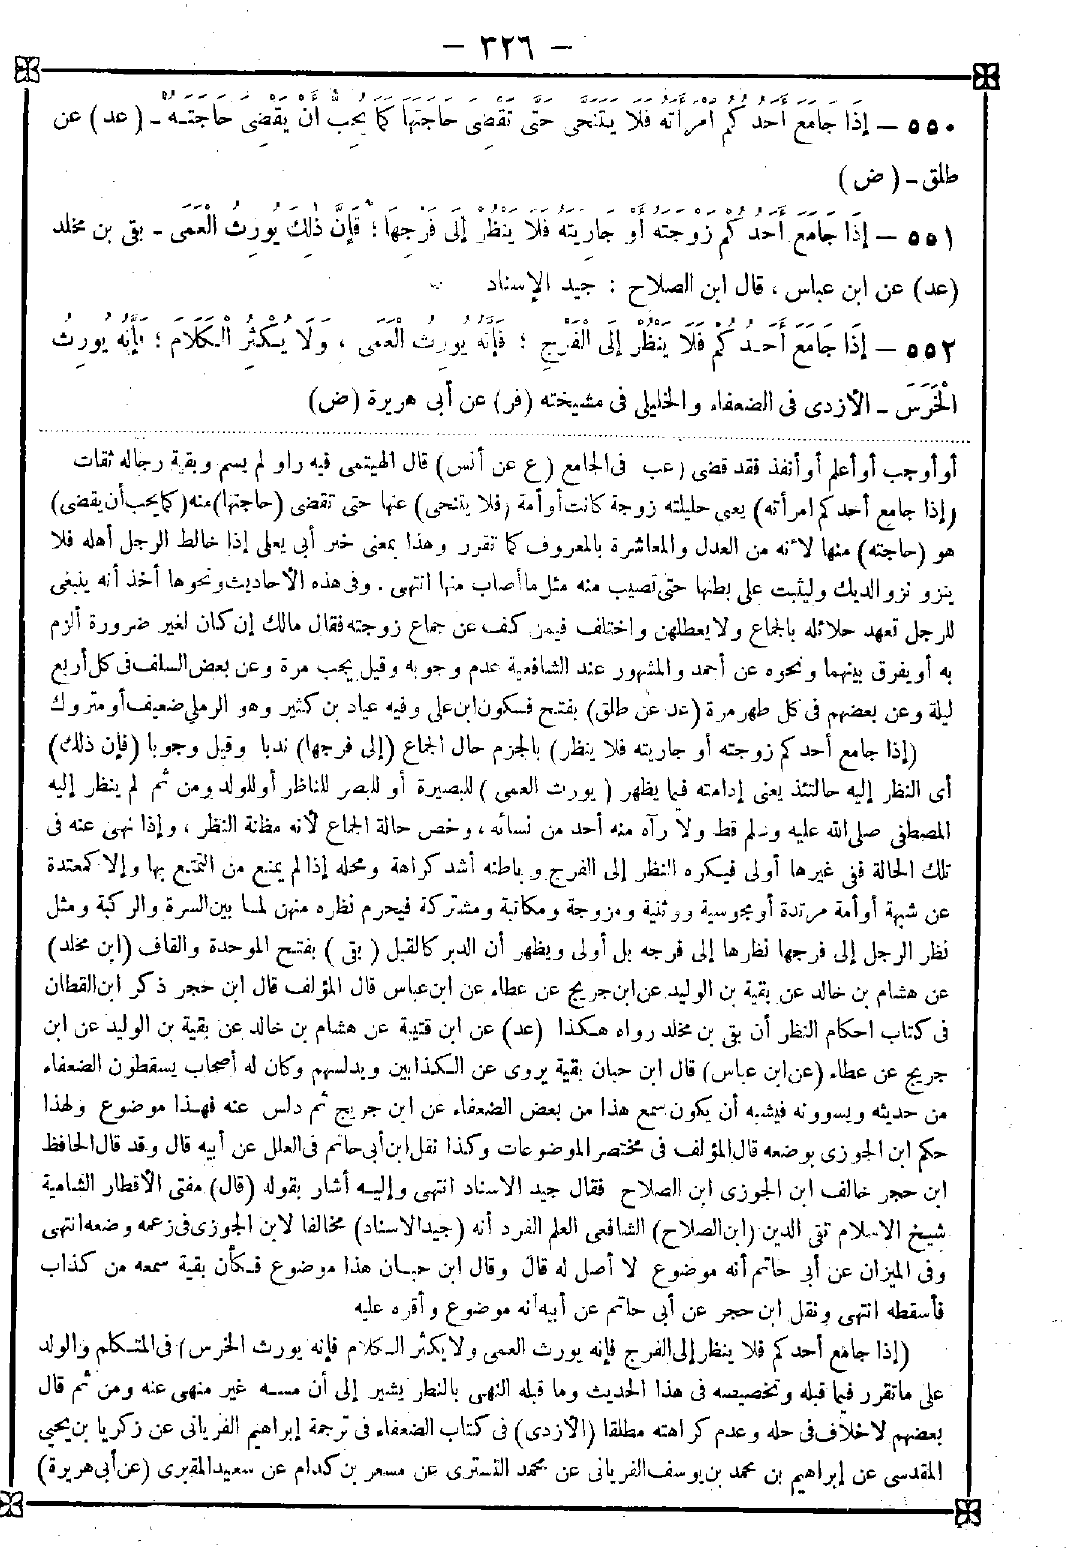 — ٣٢٦ —
٥٥٠ — إِذَا جَامَعَ أَحَدُكُمُ امْرَأَتَهُ فَلَا يَتَنَحَّى حَتَّى تَقْضِىَ حَاجَتَهَا كَمَا يُحِبُّ أَنْ يَقْضِىَ حَاجَتَـهُ ـ (عد) عن
طلق ـ (ض)
٥٥١ — إِذَا جَامَعَ أَحَدُكُمْ زَوْجَتَهُ أَوْ جَارِيَتَهُ فَلَا يَنْظُرْ إِلَى فَرْجِهَا؛ فَإِنَّ ذٰلِكَ يُورِثُ الْعَمَى ـ بقى بن مخلد
(عد) عن ابن عباس، قال ابن الصلاح: جيد الإسناد
٥٥٢ — إِذَا جَامَعَ أَحَـدُكُمْ فَلَا يَنْظُرْ إِلَى الْفَرْجِ؛ فَإِنَّهُ يُورِثُ الْعَمَى، وَلَا يُـكْثِرُ الْـكَلَامَ؛ فَإِنَّهُ يُورِثُ
الْخَرَسَ ـ الأزدى فى الضعفاء والخليلى فى مشيخته (فر) عن أبى هريرة (ض)
أو أوجب أو أعلم أو أنفذ فقد قضى (عب فى الجامع (ع عن أنس) قال الهيتمى فيه راو لم يسم وبقية رجاله ثقات
(إذا جامع أحدكم امرأته) يعنى حليلته زوجة كانت أو أمة (فلا يتنحى) عنها حتى تقضى (حاجتها) منه (كما يحب أن يقضى)
هو (حاجته) منها لأنه من العدل والمعاشرة بالمعروف كما تقرر وهذا بمعنى خبر أبى يعلى إذا خالط الرجل أهله فلا
ينزو نزو الديك وليثبت على بطنها حتى تصيب منه مثل ما أصاب منها انتهى . وفى هذه الأحاديث ونحوها أخذ أنه ينبغى
للرجل تعهد حلائله بالجماع ولا يعطلهن واختلف فيمن كف عن جماع زوجته فقال مالك إن كان لغير ضرورة ألزم
به أو يفرق بينهما ونحوه عن أحمد والمشهور عند الشافعية عدم وجوبه وقيل يجب مرة وعن بعض السلف فى كل أربع
ليلة وعن بعضهم فى كل طهر مرة (عد عن طلق) بفتح فسكون ابن على وفيه عباد بن كثير وهو الرملى ضعيف أو متروك
(إذا جامع أحدكم زوجته أو جاريته فلا ينظر) بالجزم حال الجماع (إلى فرجها) ندبا وقيل وجوبا (فإن ذلك)
أى النظر إليه حالتئذ يعنى إدامته فيما يظهر (يورث العمى) للبصيرة أو للبصر للناظر أو للولد ومن ثم لم ينظر إليه
المصطفى صلى الله عليه وسلم قط ولا رآه منه أحد من نسائه، وخص حالة الجماع لأنه مظانة النظر، وإذا نهى عنه فى
تلك الحالة ففى غيرها أولى فيكره النظر إلى الفرج وباطنه أشد كراهة ومحله إذا لم يمنع من التمتع بها وإلا كمعتدة
عن شبهة أو أمة مرتدة أو مجوسية ووثنية ومزوجة ومكاتبة ومشتركة فيحرم نظره منهن لما بين السرة والركبة ومثل
نظر الرجل إلى فرجها نظرها إلى فرجه بل أولى ويظهر أن الدبر كالقبل (بقى) بفتح الموحدة والقاف (ابن مخلد)
عن هشام بن خالد عن بقية بن الوليد عن ابن جريج عن عطاء عن ابن عباس قال المؤلف قال ابن حجر ذكر ابن القطان
فى كتاب احكام النظر أن بقى بن مخلد رواه هـكذا (عد) عن ابن قتيبة عن هشام بن خالد عن بقية بن الوليد عن ابن
جريج عن عطاء (عن ابن عباس) قال ابن حبان بقية يروى عن الـكذابين ويدلسهم وكان له أصحاب يسقطون الضعفاء
من حديثه ويسوونه فيشبه أن يكون سمع هذا من بعض الضعفاء عن ابن جريج ثم دلس عنه فهـذا موضوع ولهذا
حكم ابن الجوزى بوضعه قال المؤلف فى مختصر الموضوعات وكذا نقل ابن أبى حاتم فى العلل عن أبيه قال وقد قال الحافظ
ابن حجر خالف ابن الجوزى ابن الصلاح فقال جيد الاسناد انتهى وإليـه أشار بقوله (قال) مفتى الأقطار الشامية
شيخ الاسلام تقى الدين (ابن الصلاح) الشافعى العلم الفرد أنه (جيد الاسناد) مخالفا لابن الجوزى فى زعمه وضعه انتهى
وفى الميزان عن أبى حاتم أنه موضوع لا أصل له قال وقال ابن حبـان هذا موضوع فـكأن بقية سمعه من كذاب
فأسقطه انتهى ونقل ابن حجر عن أبى حاتم عن أبيه أنه موضوع وأقره عليه
(إذا جامع أحدكم فلا ينظر إلى الفرج فإنه يورث العمى ولا يكثر الـكلام فإنه يورث الخرس) فى المتـكلم والولد
على ماتقرر فيما قبله وتخصيصه فى هذا الحديث وما قبله النهى بالنظر يشير إلى أن مسـه غير منهى عنه ومن ثم قال
بعضهم لاخلاف فى حله وعدم كراهته مطلقا (الأزدى) فى كتاب الضعفاء فى ترجمة إبراهيم الفريانى عن زكريا بن يحيى
المقدسى عن إبراهيم بن محمد بن يوسف الفريانى عن محمد التسترى عن مسعر بن كدام عن سعيد المقبرى (عن أبى هريرة)